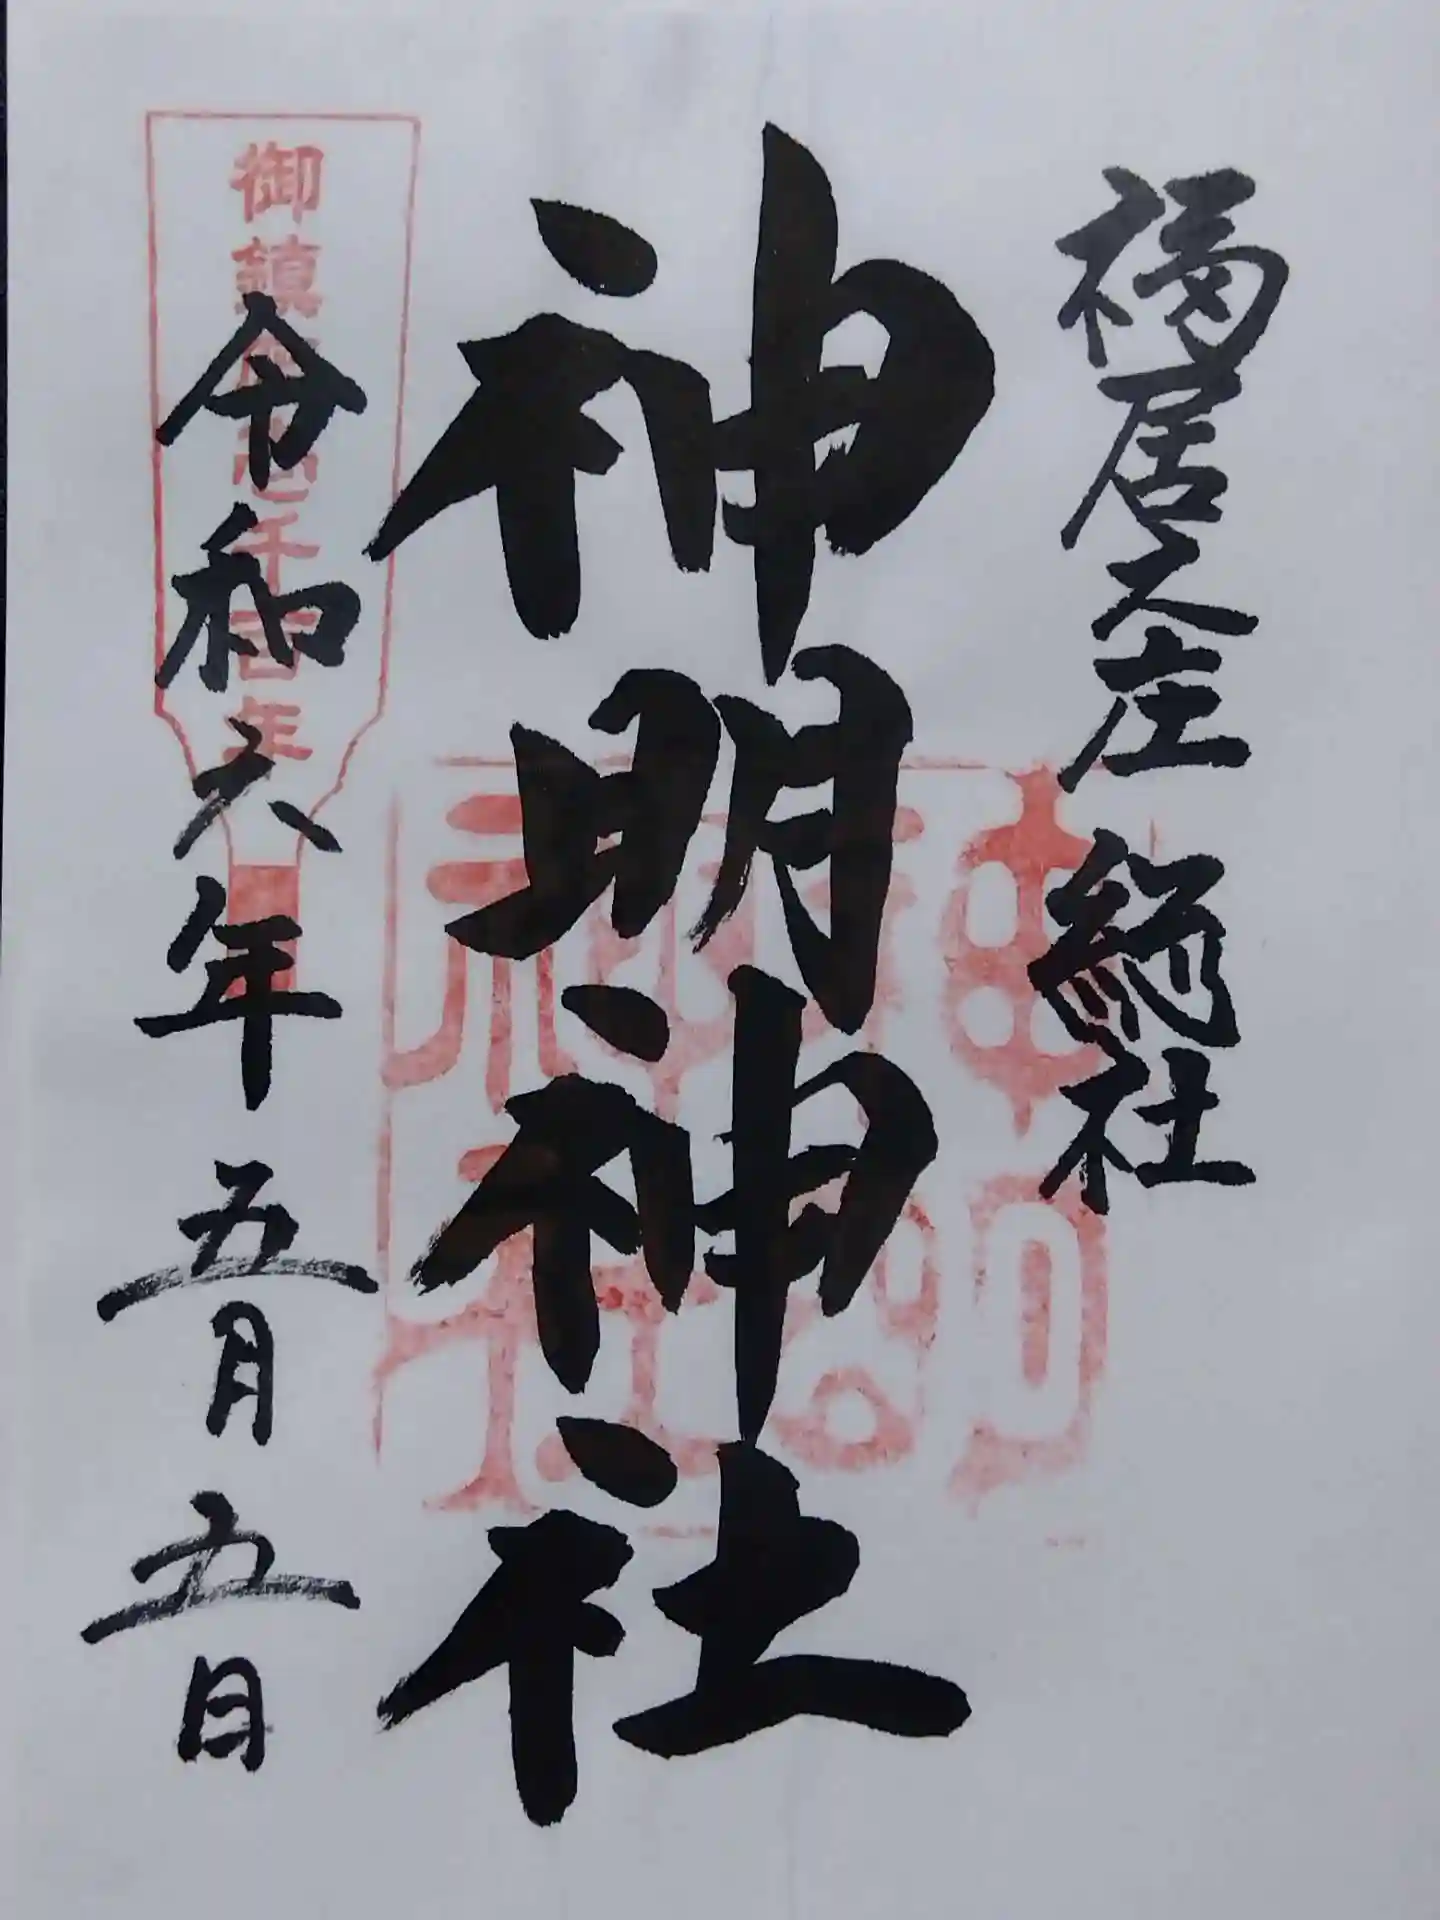 福居之庄 総社
神明神社
令和六年五月五日
御鎮座壱千百年